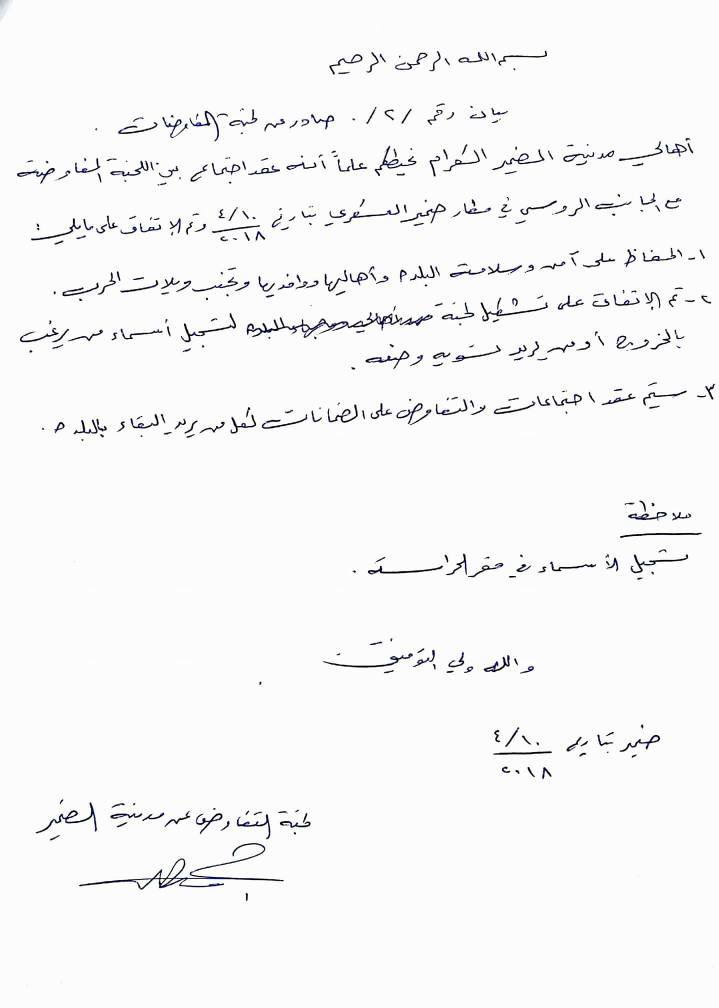 بسم الله الرحمن الرحيم
بيان رقم /٢/ . صادر عن لجنة المفاوضات .
أهالي مدينة الضمير الكرام نحيطكم علماً أنه عقد اجتماع بين اللجنة المفاوضة
مع الجانب الروسي في مطار ضمير العسكري بتاريخ ٤/١٠/٢٠١٨ وتم الاتفاق على مايلي :
١- الحفاظ على آمن وسلامة البلدة وأهاليها ووافديها وتجنب ويلات الحرب .
٢- تم الإتفاق على تشكيل لجنة لتسجيل أسماء من يرغب
بالخروج أو من يريد تسوية وضعه .
٣- سيتم عقد اجتماعات والتفاوض على الضمانات لكل من يريد البقاء بالبلدة .
ملاحظة
تسجيل الأسماء في مقر الحراسة .
والله ولي التوفيق
ضمير بتاريخ ٤/١٠/٢٠١٨
لجنة التفاوض عن مدينة الضمير